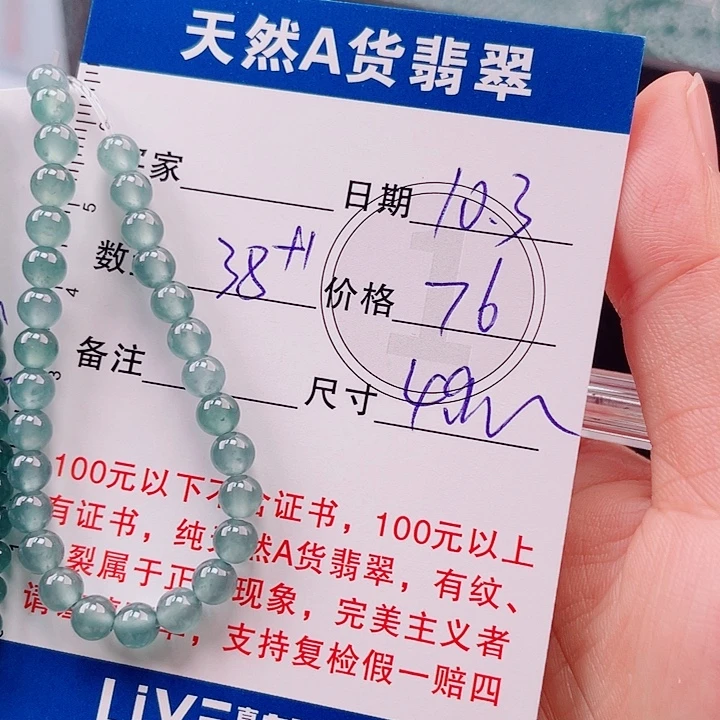 天然A货翡翠
家 日期 10.3
数 38+1 价格 76
备注 尺寸 4.9m
5
4
3
100元以下不含证书，100元以上
有证书，纯天然A货翡翠，有纹、
裂属于正 现象，完美主义者
请 ，支持复检假一赔四
LiV